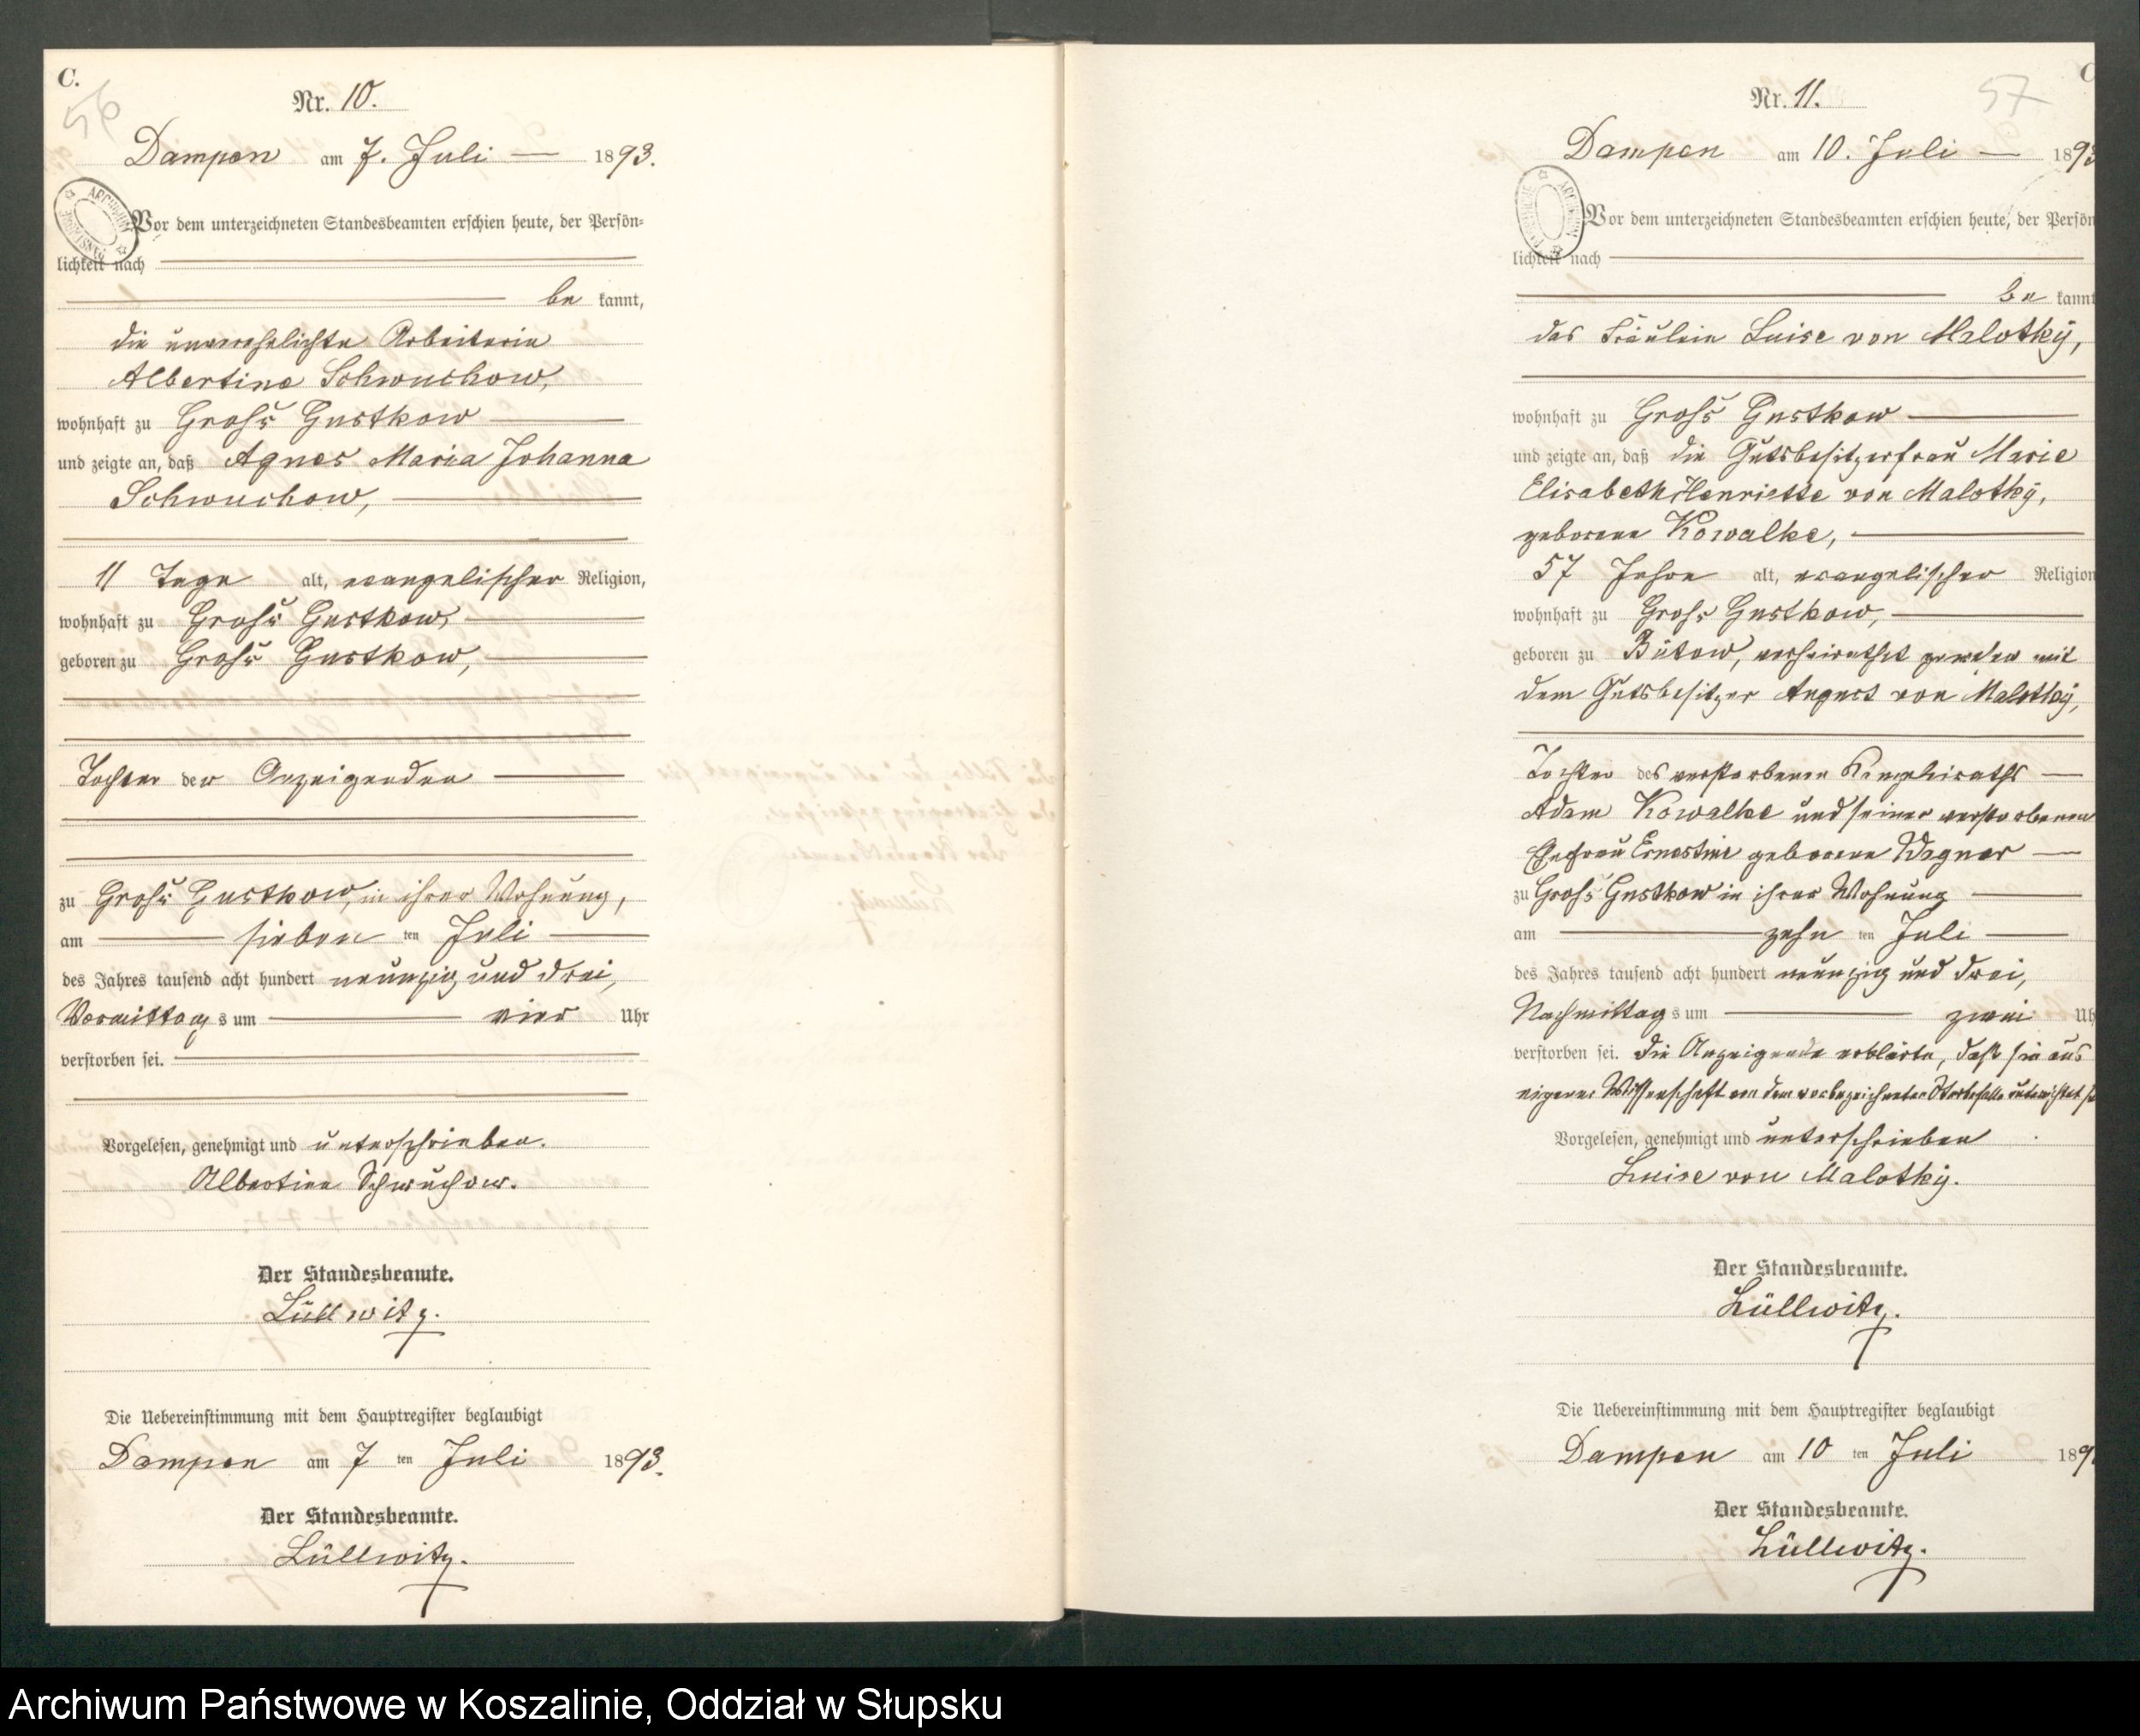 C.
56
Nr. 10.
Dampen am 7. Juli 1893.
Vor dem unterzeichneten Standesbeamten erschien heute, der Persön-
lichkeit nach
be kannt,
die unverehelichte Arbeiterin
Albertine Schwuchow,
wohnhaft zu Groß Gustkow
und zeigte an, daß Agnes Maria Johanna
Schwuchow,
11 Tage alt, evangelischer Religion,
wohnhaft zu Groß Gustkow,
geboren zu Groß Gustkow,
Tochter der Anzeigenden
zu Groß Gustkow, in ihrer Wohnung,
am sieben ten Juli
des Jahres tausend acht hundert neunzig und drei,
Vormittags um vier Uhr
verstorben sei.
Vorgelesen, genehmigt und unterschrieben.
Albertine Schwuchow.
Der Standesbeamte.
Lüllwitz.
Die Uebereinstimmung mit dem Hauptregister beglaubigt
Dampen am 7 ten Juli 1893.
Der Standesbeamte.
Lüllwitz.
C
57
Nr. 11.
Dampen am 10. Juli 1893
Vor dem unterzeichneten Standesbeamten erschien heute, der Persön
lichkeit nach
be kannt
das Fräulein Luise von Malotky,
wohnhaft zu Groß Gustkow
und zeigte an, daß die Gutsbesitzerfrau Marie
Elisabeth Henriette von Malotky,
geborene Kowalke,
57 Jahre alt, evangelischer Religion
wohnhaft zu Groß Gustkow,
geboren zu Bütow, verheirathet gewesen mit
dem Gutsbesitzer August von Malotky,
Tochter des verstorbenen Kanzleiraths
Adam Kowalke und seiner verstorbenen
Ehefrau Ernestine geborene Wegner
zu Groß Gustkow in ihrer Wohnung
am zehn ten Juli
des Jahres tausend acht hundert neunzig und drei,
Nachmittags um zwei Uh
verstorben sei. Die Anzeigende erklärte, daß sie aus
eigener Wissenschaft von dem vorbezeichneten Sterbefalle unterrichtet se
Vorgelesen, genehmigt und unterschrieben
Luise von Malotky.
Der Standesbeamte.
Lüllwitz.
Die Uebereinstimmung mit dem Hauptregister beglaubigt
Dampen am 10 ten Juli 189
Der Standesbeamte.
Lüllwitz.
Archiwum Państwowe w Koszalinie, Oddział w Słupsku